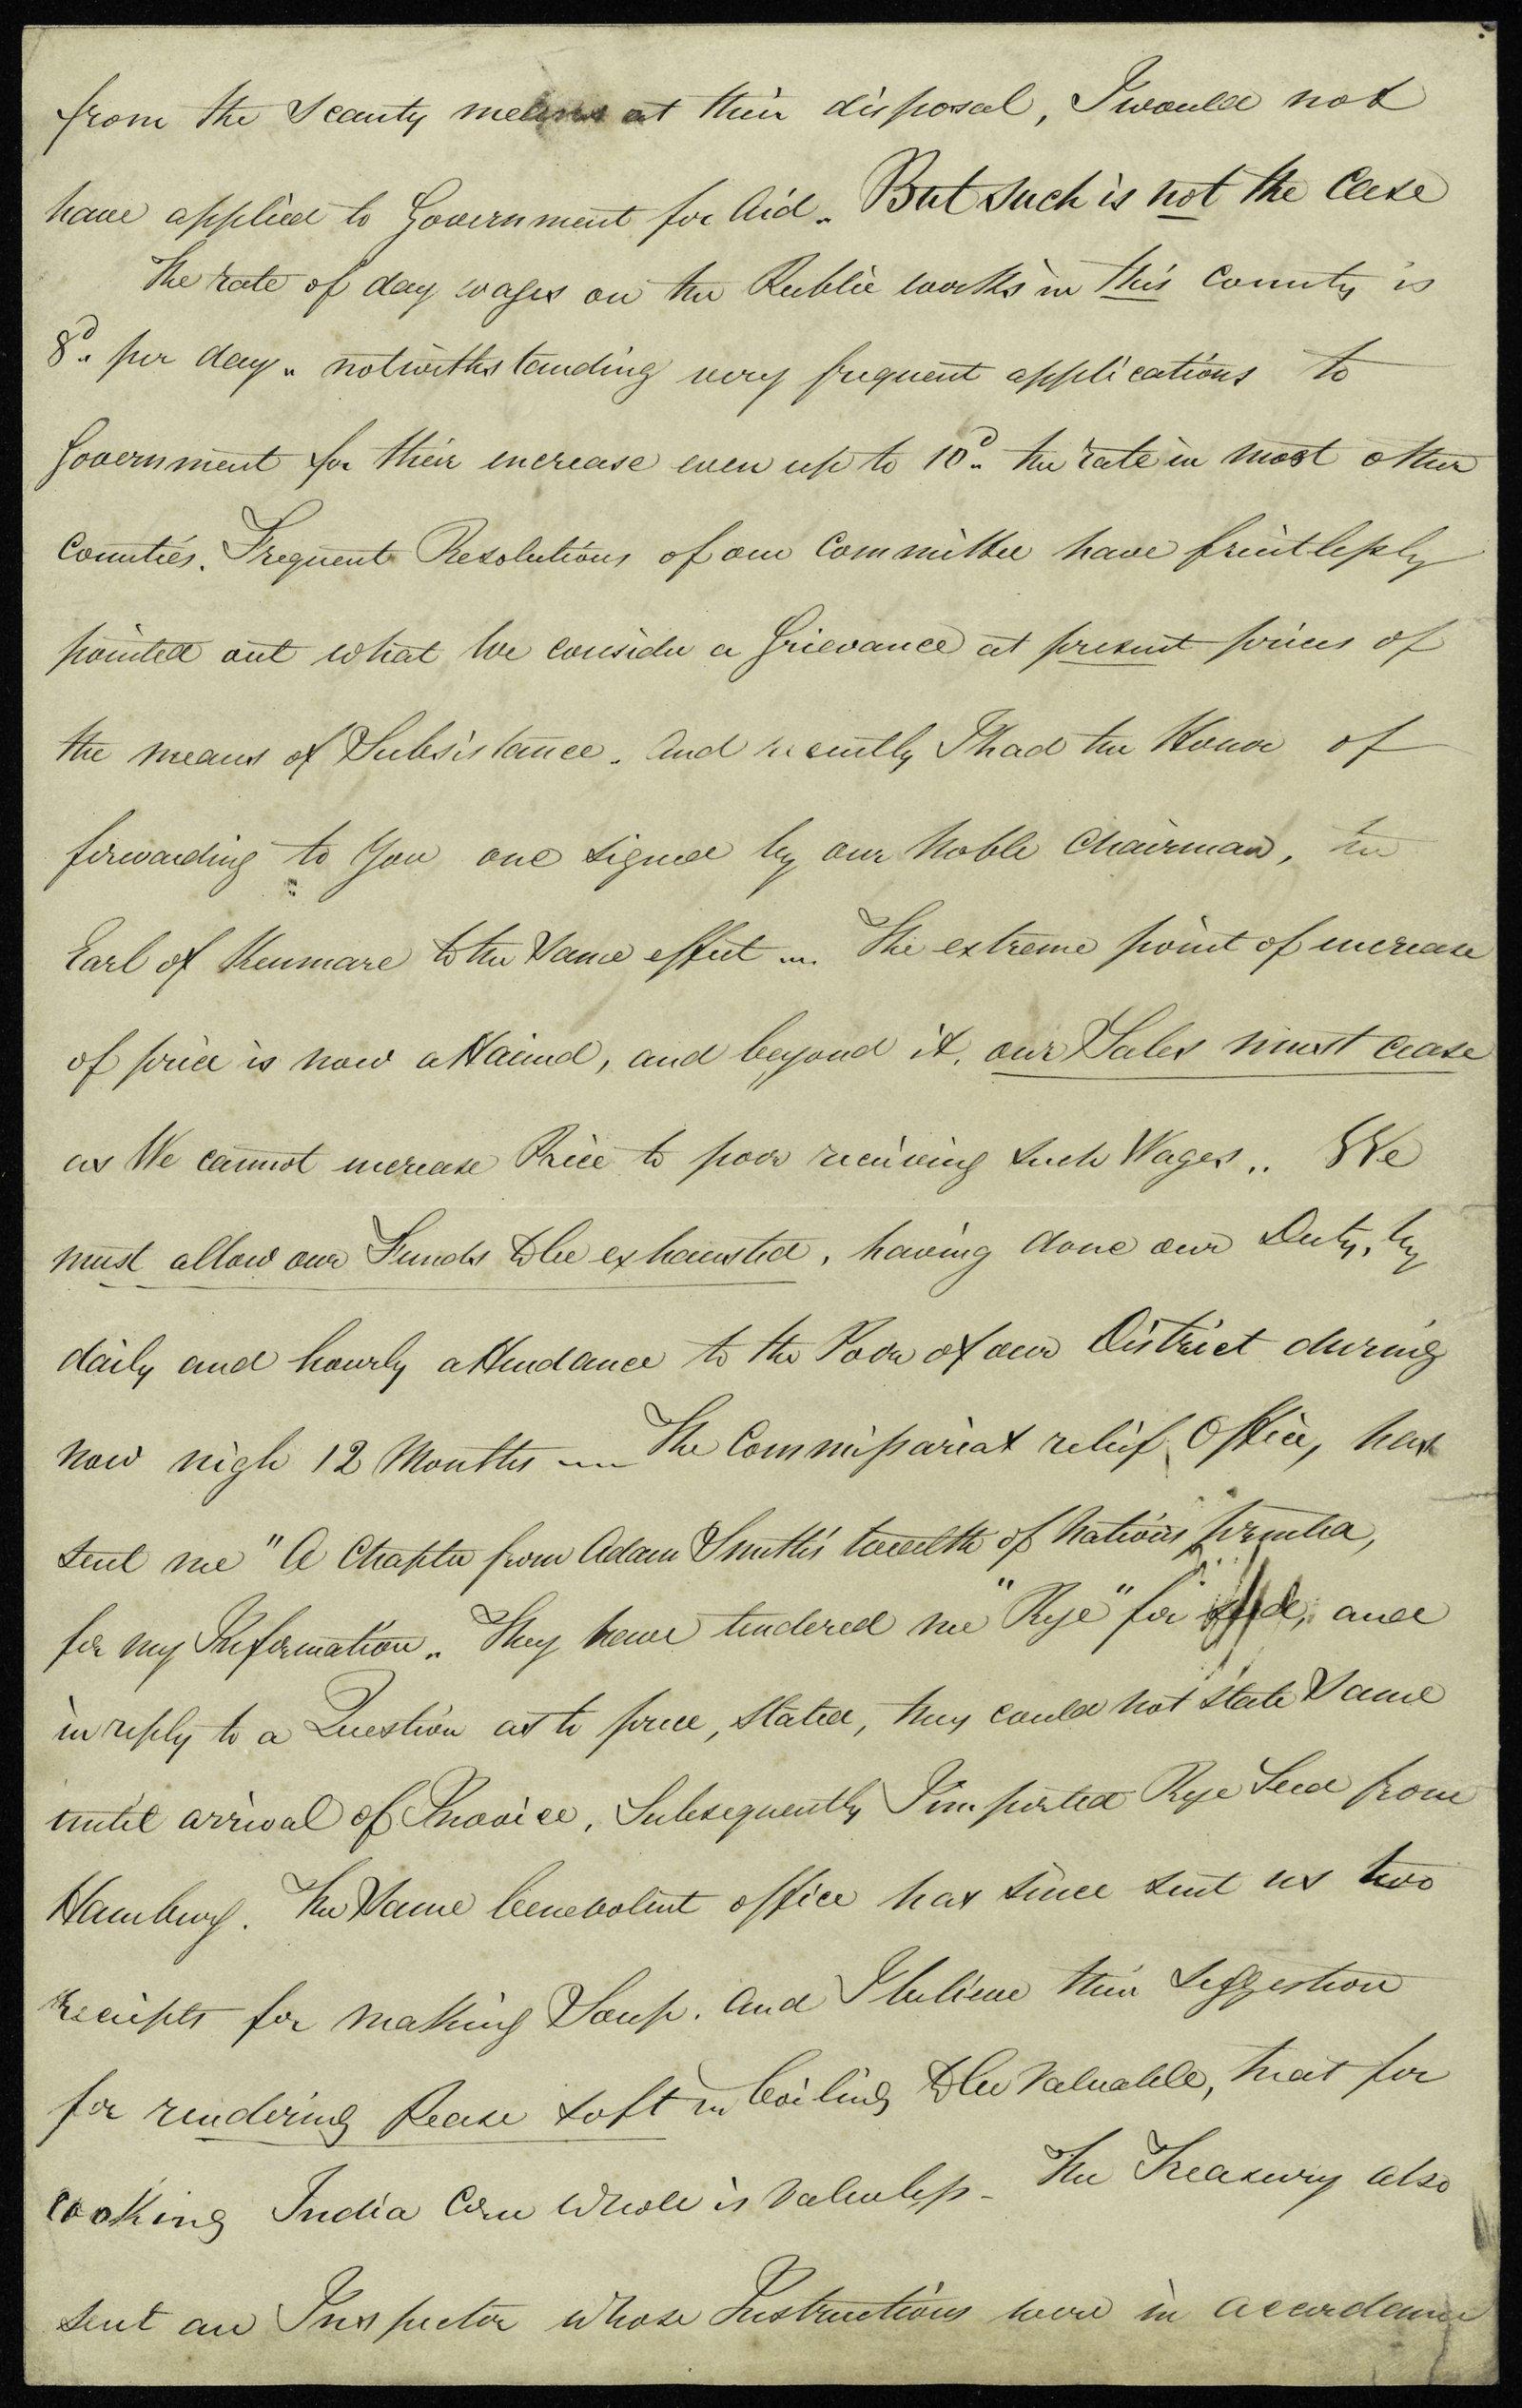 from the Scanty means at their disposal, I would not
have applied to Government for Aid. But such is not the Case
The rate of day wages on the Public works in this County is
8d. per day. notwithstanding very frequent applications to
Government for their encrease even up to 10d. the rate in most other
Counties. Frequent Resolutions of our Committee have fruitlessly
pointed out what we consider a Grievance at present prices of
the means of Subsistance. And recently I had the Honor of
forwarding to You one signed by our Noble Chairman, the
Earl of Kenmare to the Same effect ... The extreme point of encrease
of price is now attained, and beyond it, our Sales must cease
as We cannot encrease Price to poor receiving such Wages.. We
must allow our Funds to be exhausted, having done our Duty, by
daily and hourly attendance to the Poor of our District during
now nigh 12 Months — The Commissariat relief Office, has
sent me "A Chapter from Adam Smith's Wealth of Nations printed,
for my Information. They have tendered me "Rye" for seed, and
in reply to a Question as to price, stated, they could not state Same
until arrival of Invoice, Subsequently I imported Rye Seed from
Hamburg. The Same benevolent office has since sent us two
receipts for making Soup. And I believe their suggestion
for rendering Pease soft in boiling to be Valuable, that for
cooking India Corn Whole is Valueless - The Treasury also
sent an Inspector whose Instructions were in accordance